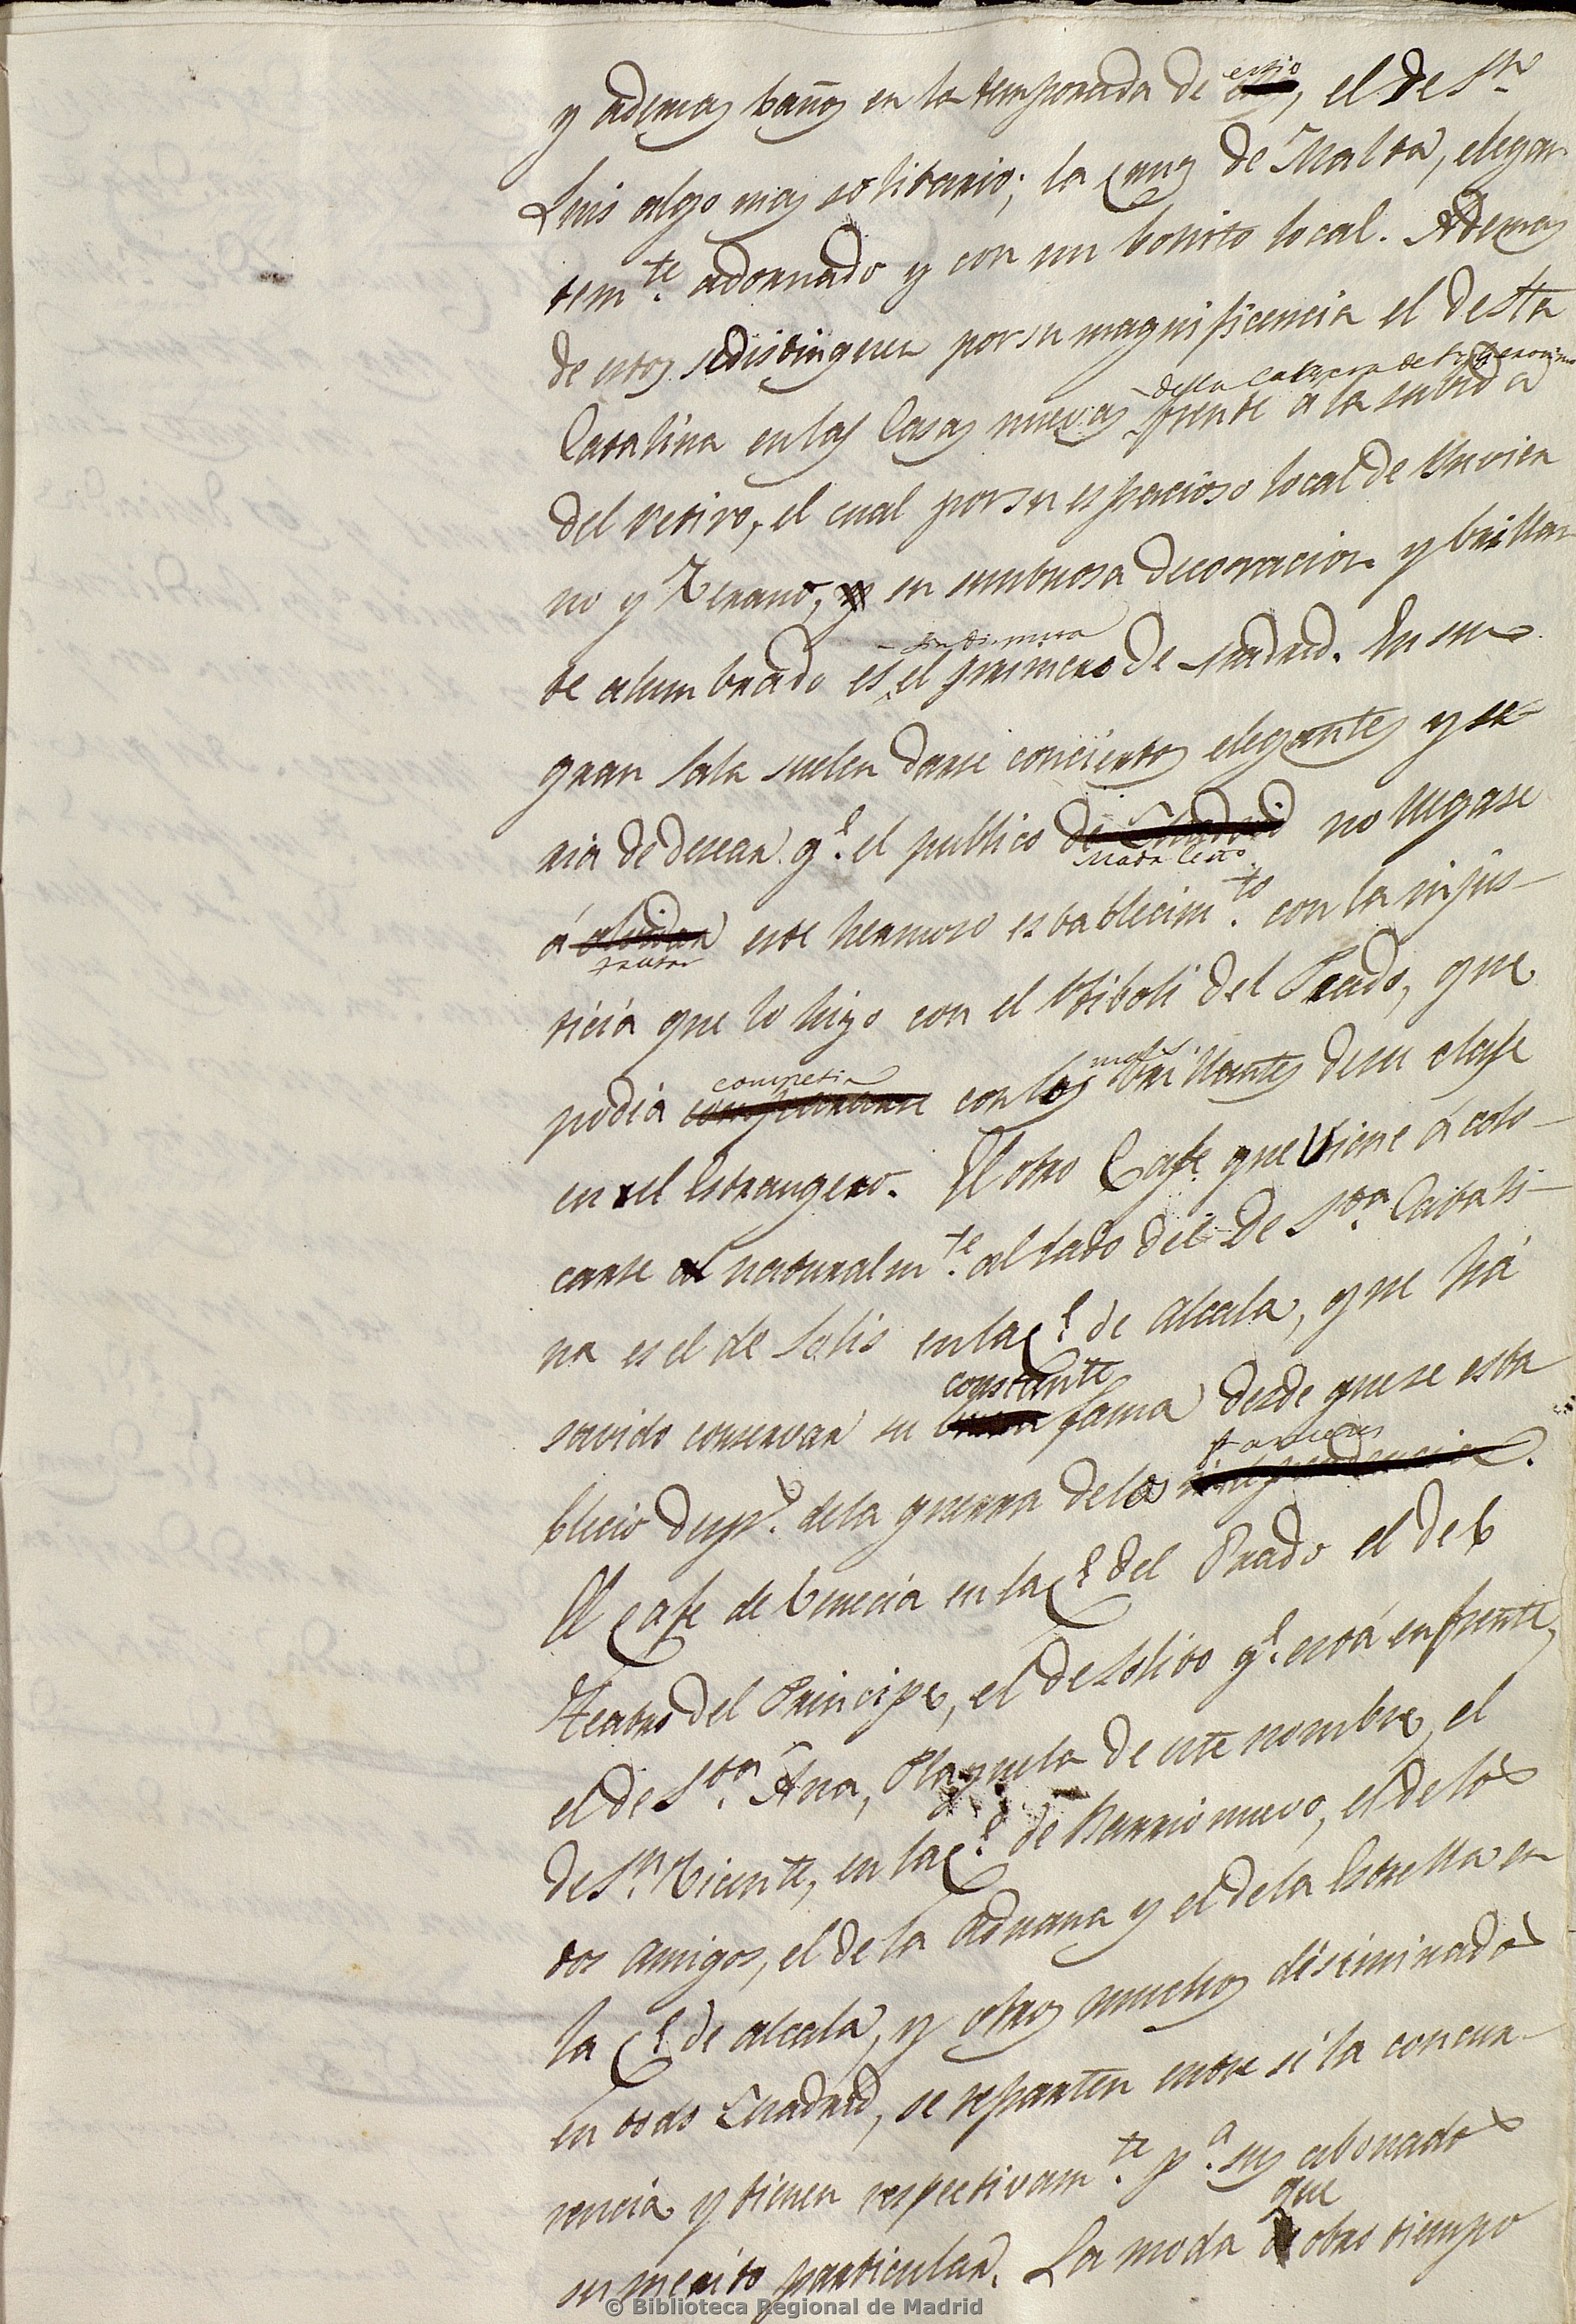 y ademas baños en la temporada de estio, el de Sn.
Luis algo mas solitario; la Cruz de Malta, elegan
temte. adornado y con un bonito local. Ademas
de estos se distinguen por su magnificencia el de Sta
de la Carrera de Sn Geronimo
Catalina en las Casas nuevas frente a la subida
del retiro, el cual por su espacioso local de Ynvier
no y Verano, su suntuosa decoracion y brillan
sin disputa
te alumbrado es el primero de Madrid. En su
gran Sala suelen darse conciertos elegantes y se
ria de desear ql. el publico de Madrid no llegase
Madrileño
á olvidar este hermoso establecimto. con la injus-
tratar
ticia que lo hizo con el Tiboli del Prado, que
competir
podia con los mas brillantes de su clase
en el Estrangero. El otro Cafe que viene á colo-
carse naturalmte. al lado del de Sta. Catali-
na es el de Solis en la Cl. de Alcala, que há
constante
savido conservar su buena fama desde que se esta
franceses
blecio desps. de la guerra de los independencia.
El Cafe de Venecia en la Cl. del Prado el del
Teatro del Principe, el de Solito ql. está enfrente,
el de Sta. Ana, Plazuela de este nombre, el
de Sn. Vicente, en la Cl. de Barrionuevo, el de los
dos amigos, el de la Aduana y el de la Estrella en
la Cl. de Alcala, y otros muchos diseminados
en todo Madrid, se reparten entre si la concur-
rencia y tienen respectivamte. pa. sus abonados
que
su merito particular. La moda otro tiempo
© Biblioteca Regional de Madrid